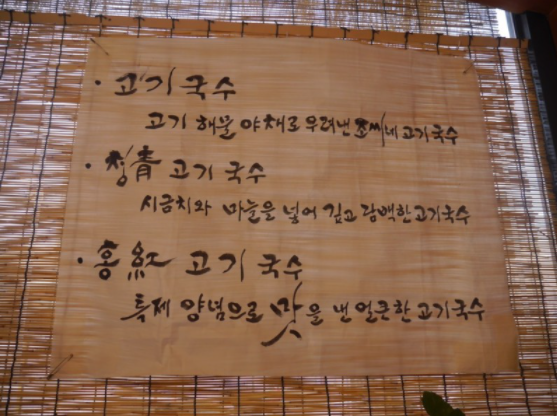 · 고기국수
고기 해물 야채로 우려낸 조씨네 고기국수
· 청靑 고기국수
시금치와 마늘을 넣어 깊고 담백한 고기국수
· 홍紅 고기국수
특제 양념으로 맛을 낸 얼큰한 고기국수